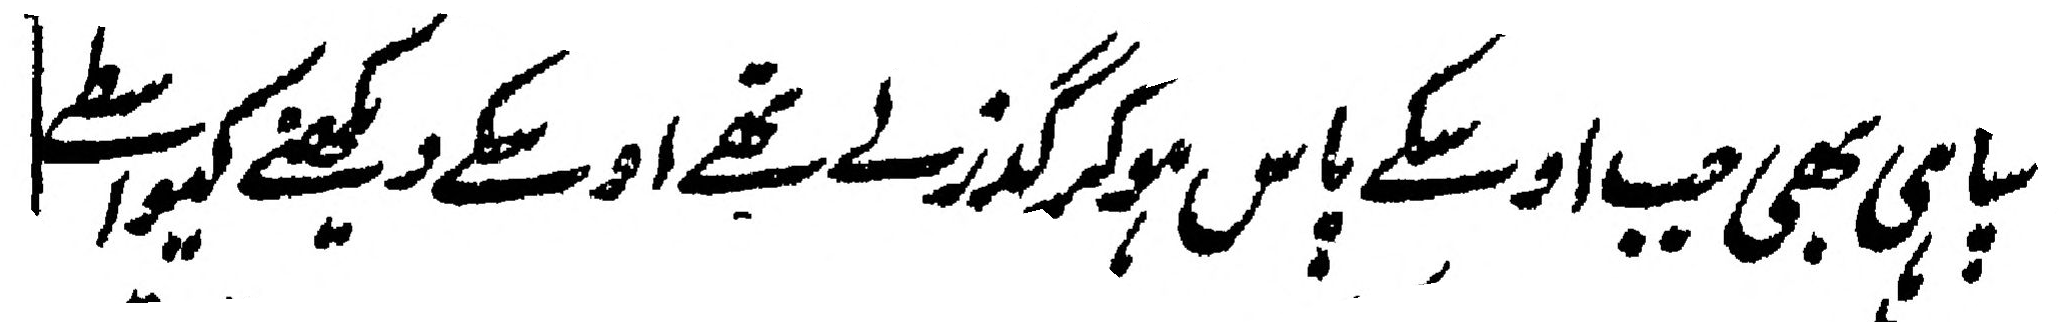 سپاہی بھی جب اوسکے پاس ہوکر گذرتے تھے اوسکے دیکھنے کیواسطے